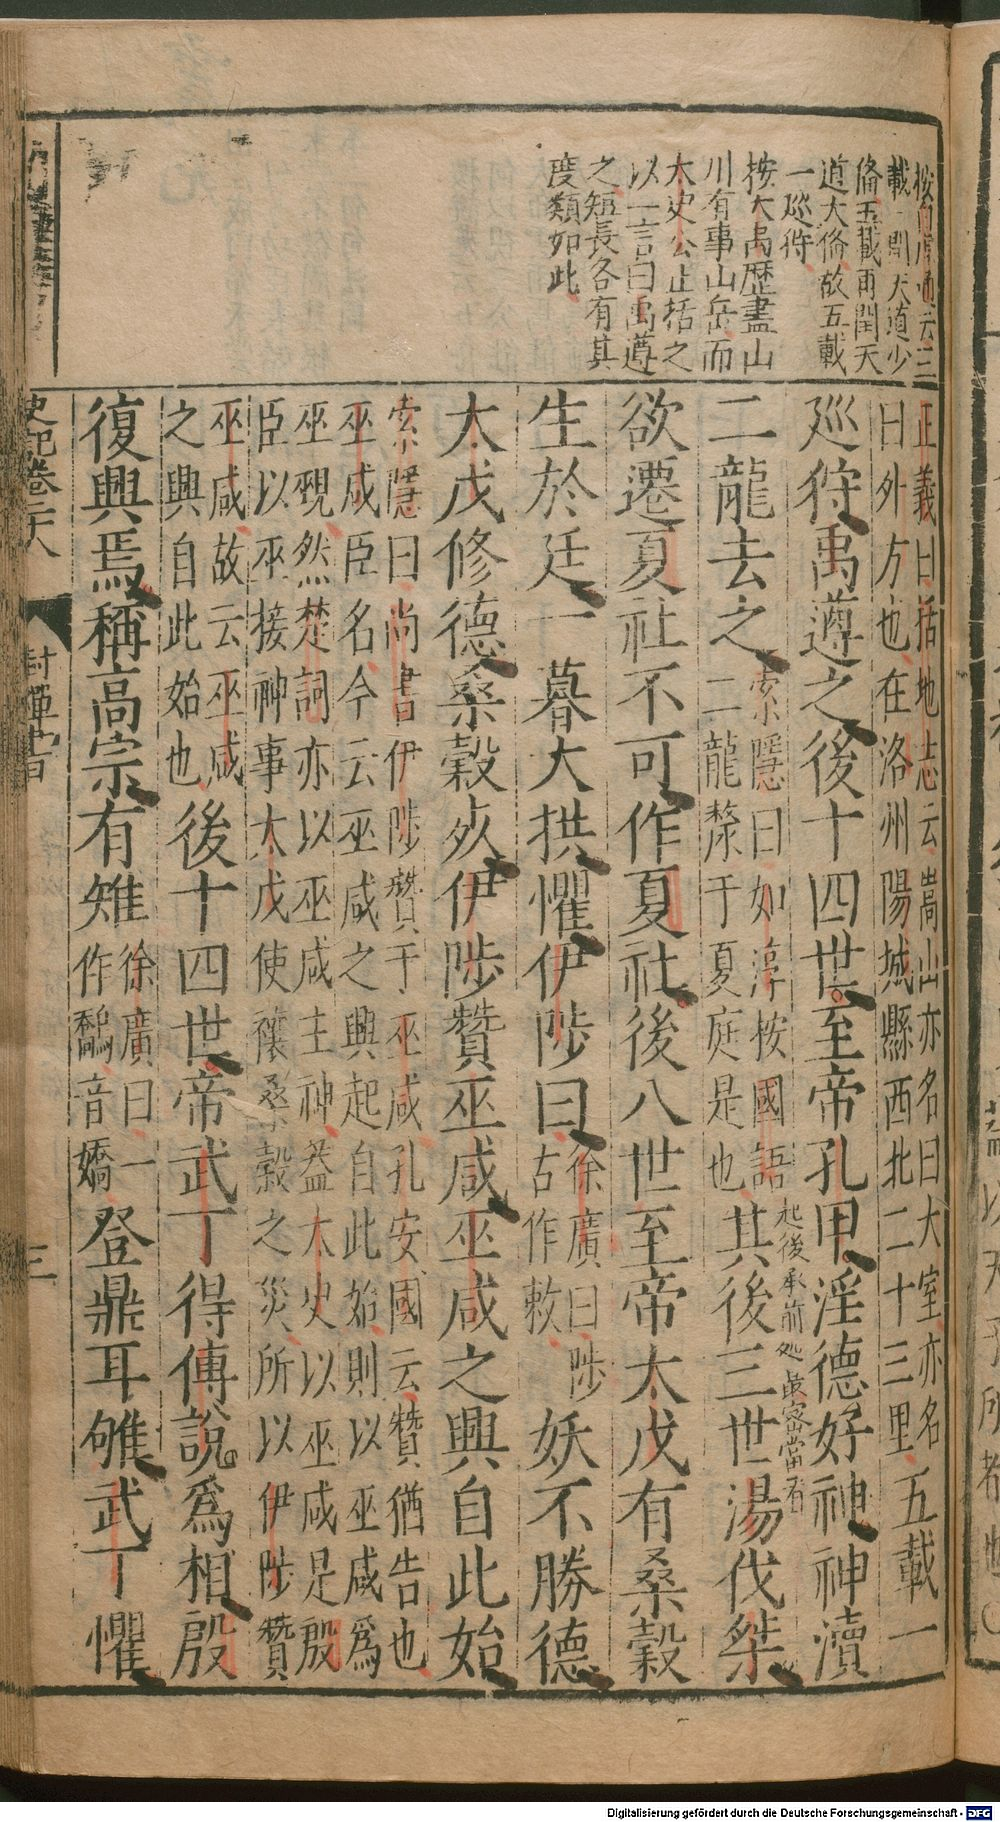 載一閏天道少
俻五載再閏天
道大俻故五載
一廵狩
按大禹歷盡山
川有事山岳而
太史公止括之
以一言曰禹遵
之短長各有其
度類如此
正義曰括地志云嵩山亦名曰大室亦名
曰外方也在洛州陽城縣西北二十三里
五載一
廵狩禹遵之後十四世至帝孔甲淫德好神神瀆
二龍去之
索隱曰如淳按國語
二龍漦于夏庭是也
其後三世湯伐桀
欲遷夏社不可作夏社後八世至帝太戊有桑榖
生於廷一暮大拱懼伊陟曰
徐廣曰陟
古作敕
妖不勝德
太戊修德桑榖死伊陟贊巫咸巫咸之興自此始
索隱曰尚書伊陟贊于巫咸孔安國云贊猶告也
巫咸臣名今云巫咸之興起自此始則以巫咸爲
巫覡然楚詞亦以巫咸主神葢太史以巫咸是殷
臣以巫接神事太戊使禳桑榖之災所以伊陟贊
巫咸故云巫咸
之興自此始也
後十四世帝武丁得傅說爲相殷
復興焉稱高宗有雉
徐廣曰一
作鷮音嬌
登鼎耳雊武丁懼
史記卷二十八
封禪書
三
Digitalisierung gefördert durch die Deutsche Forschungsgemeinschaft - DFG